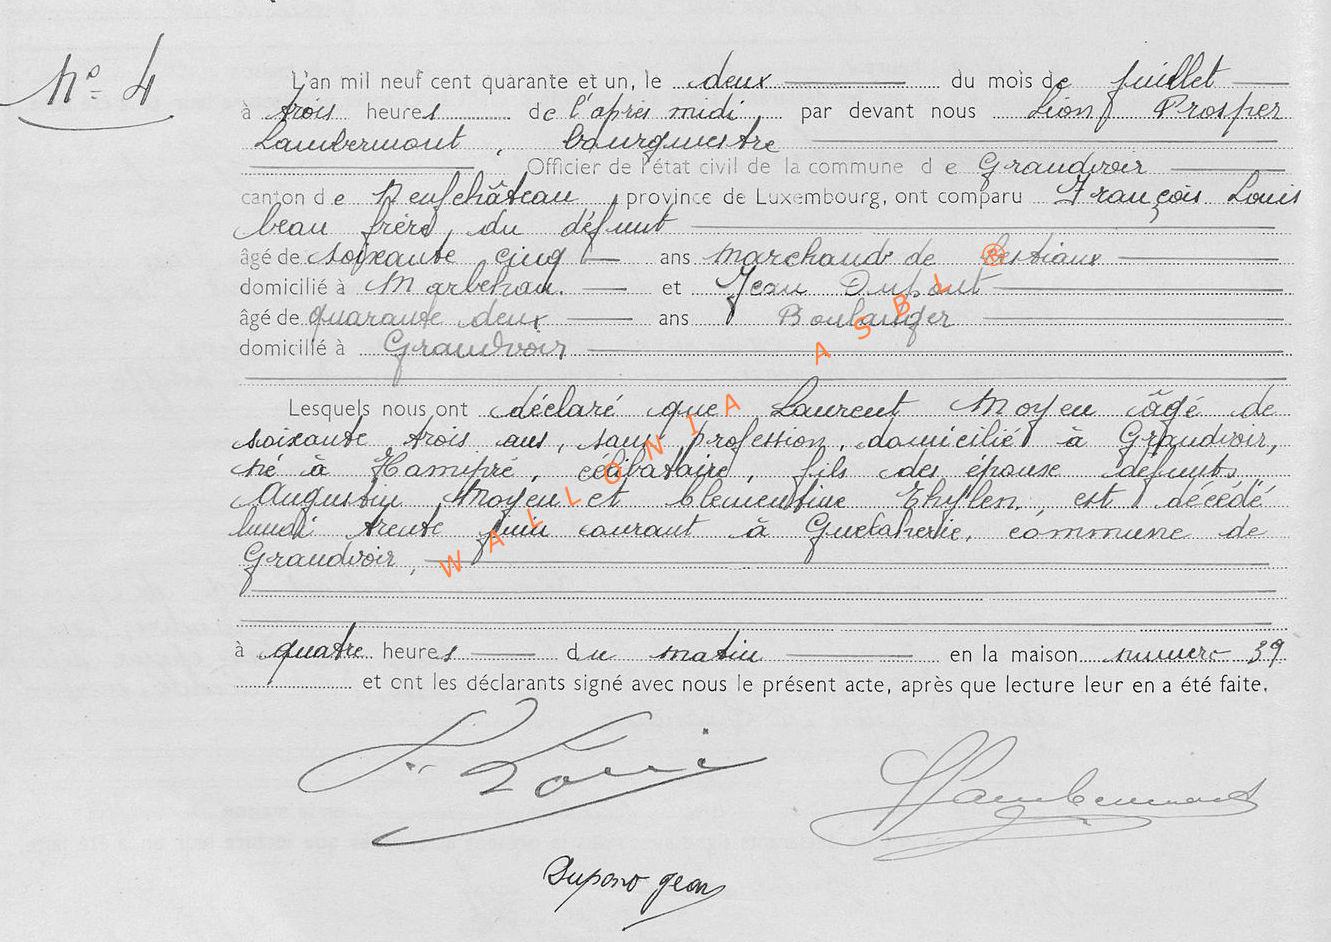 Nº 4
L'an mil neuf cent quarante et un, le deux du mois de juillet
à trois heures de l'après midi par devant nous Léon Prosper
Lambermont, bourgmestre
Officier de l'état civil de la commune de Grandvoir
canton de Neufchâteau, province de Luxembourg, ont comparu François Louis
beau frère, du défunt
âgé de soixante cinq ans marchand de bestiaux
domicilié à Marbehan. et Jean Dupont
âgé de quarante deux ans Boulanger
domicilié à Grandvoir
Lesquels nous ont déclaré que Laurent Moyen âgé de
soixante trois ans, sans profession, domicilié à Grandvoir,
né à Hamipré, célibataire, fils des épouse défunts,
Augustin Moyen et Clémentine est décédé
lundi trente juin courant à commune de
Grandvoir,
à quatre heures du matin en la maison numéro 39
et ont les déclarants signé avec nous le présent acte, après que lecture leur en a été faite.
F. Louis
Lambermont
Dupont Jean
WALLONIA ASBL ®